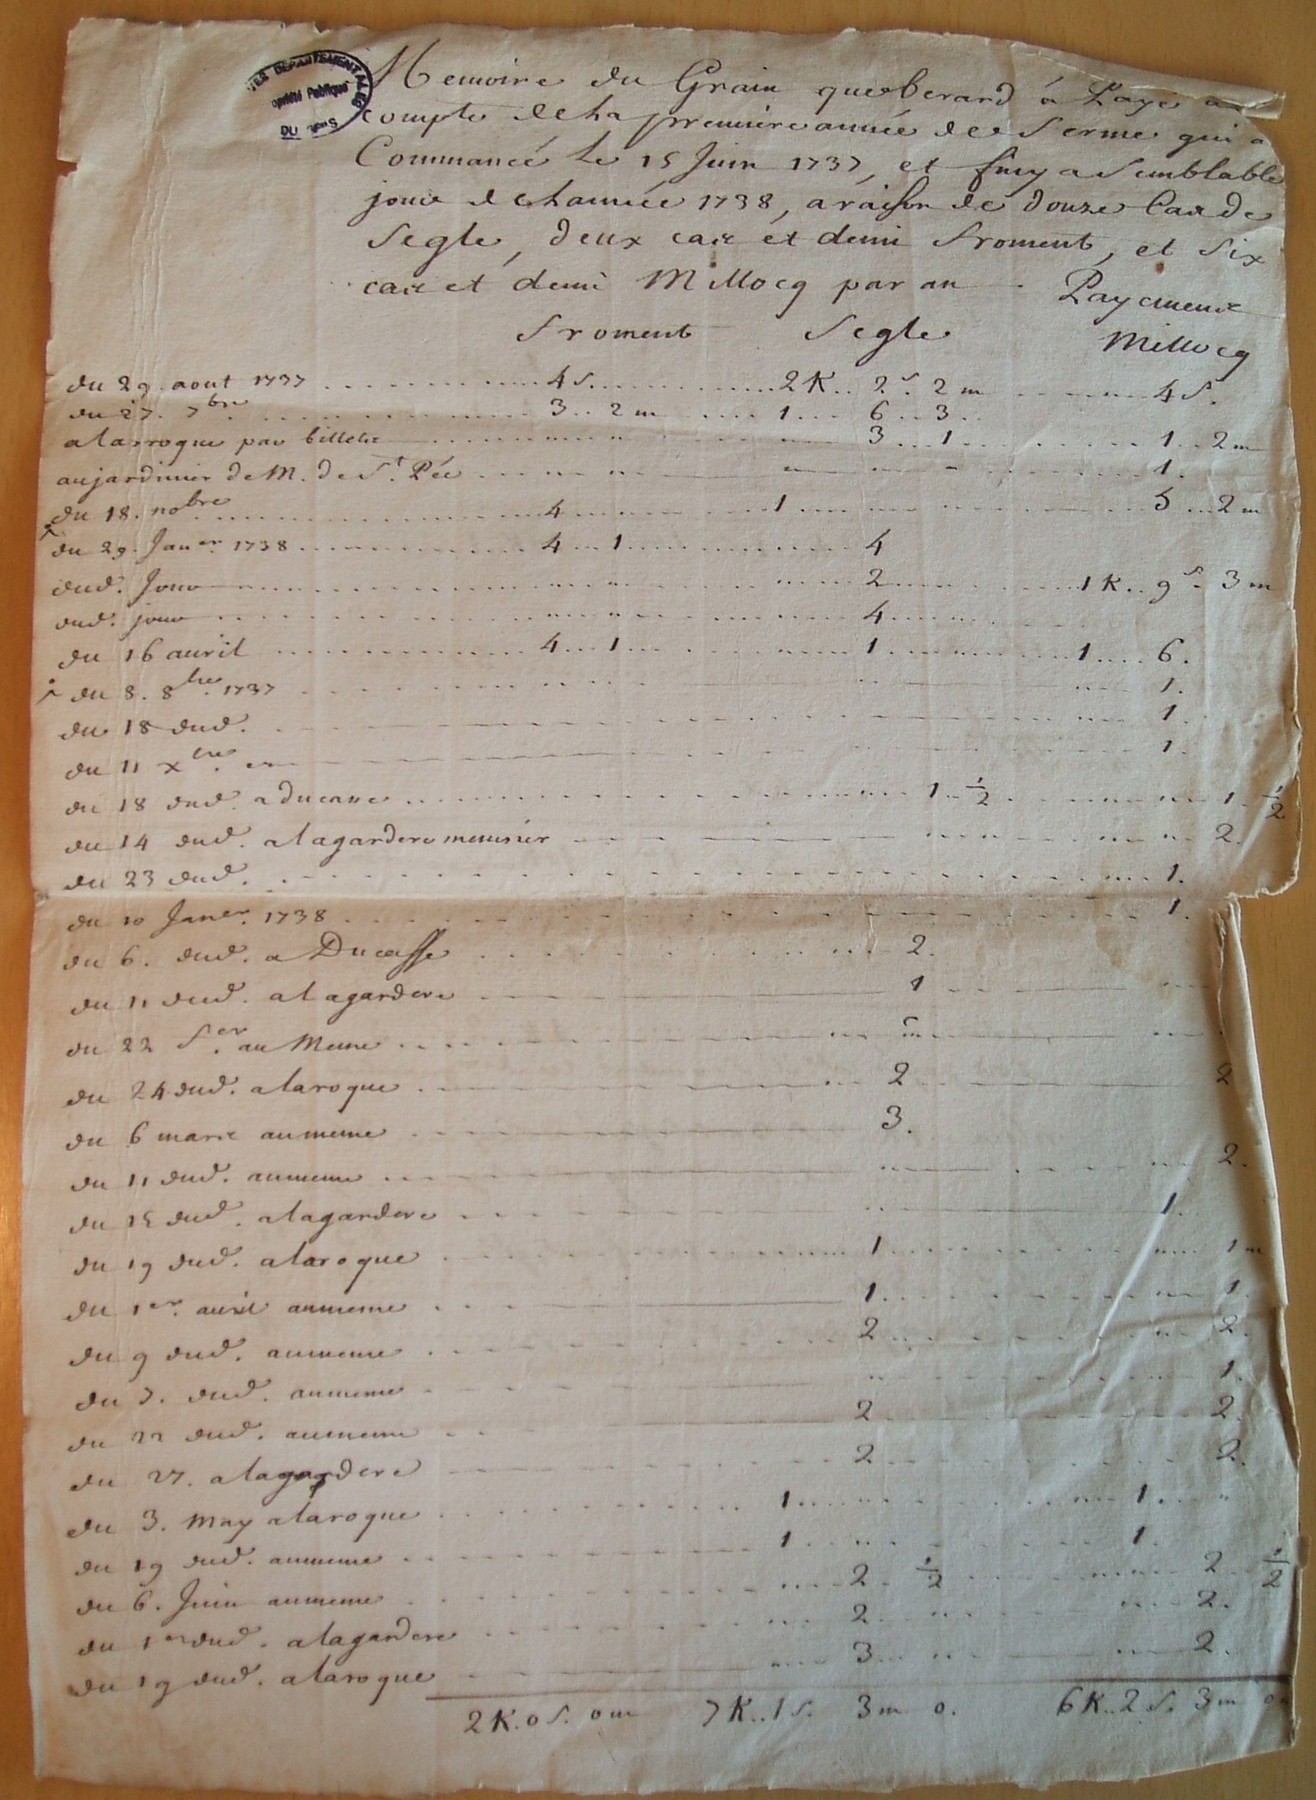 ES DEPARTEMENTALES
Propriété Publique
DU GERS
Memoire du Grain que berard á Payé a
compte de La premiere année de s ferme qui a
Commancé Le 15 Juin 1737, et finy a Semblable
jour de Lannée 1738, a raison de douze Cax de
Segle, deux cax et demi froment, et Six
cax et demi Millocq par an Payement
froment Segle Millocq
du 29. aout 1737 4 s. 2 K. 2 s. 2 m 4 s.
du 27. 7bre 3 2 m 1 6 3
a laroque par billets 3 1 1 2 m
au jardinier de M. de St. Pée 1.
du 18. nobre 4 1 5 2 m
du 29. Janer. 1738 4 1 4
dud. Jour 2 1 K. 9 s. 3 m
dud. jour 4
du 16 auril 4 1 1 1 6.
du 8. 8bre. 1737 1.
du 18 dud. 1.
du 11 xbre. 1.
du 18 dud. a ducasse 1 1/2 1 1/2
du 14 dud. a lagardere meunier 2.
du 23 dud. 1.
du 10 Janer. 1738 1.
du 6. dud. a Ducasse 2.
du 11 dud. a lagardere 1
du 22 fer. au Meme
du 24 dud. a laroque 2 2
du 6 mars au meme 3.
du 11 dud. au meme 2.
du 15 dud. a lagardere 1.
du 19 dud. a laroque 1 1 m
du 1er. auril au meme 1 1.
du 9 dud. au meme 2 2.
du 7. dud. au meme 1.
du 22 dud. au meme 2 2.
du 27. a lagardere 2 2.
du 3. may a laroque 1 1.
du 19 dud. au meme 1 1.
du 6. Juin au meme 2 1/2 2 1/2
du 1er dud. a lagardere 2 2.
du 19 dud. a laroque 3 2.
2 K. 0 s. 0 m 7 K. 1 s. 3 m 0. 6 K. 2 s. 3 m 0